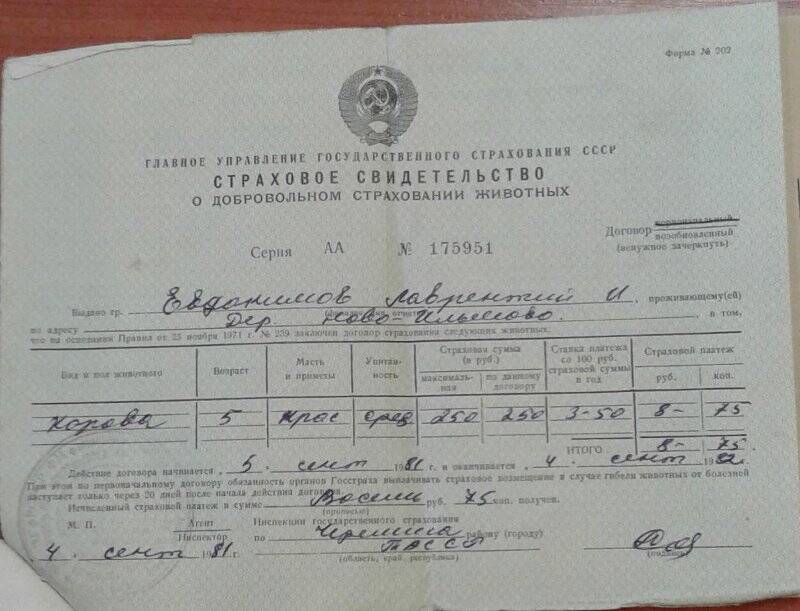 Форма № 202
ГЛАВНОЕ УПРАВЛЕНИЕ ГОСУДАРСТВЕННОГО СТРАХОВАНИЯ СССР
СТРАХОВОЕ СВИДЕТЕЛЬСТВО
О ДОБРОВОЛЬНОМ СТРАХОВАНИИ ЖИВОТНЫХ
Договор первоначальный
возобновленный
(ненужное зачеркнуть)
Серия АА № 175951
Выдано гр. Евдокимов Лаврентий И , проживающему(ей)
по адресу Дер. Ново-Ильмово. , в том,
что на основании Правил от 25 ноября 1971 г. № 239 заключен договор страхования следующих животных.
Вид и пол животного Возраст Масть и приметы Упитанность Страховая сумма (в руб.) максимальная по данному договору Ставка платежа со 100 руб. страховой суммы в год Страховой платеж руб. коп.
Корова 5 крас сред 250 250 3-50 8- 75
ИТОГО 8- 75
Действие договора начинается „ 5 . сент 1981 г. и оканчивается „ 4 . сент 1982 г.
При этом по первоначальному договору обязанность органов Госстраха выплачивать страховое возмещение в случае гибели животных от болезней
наступает только через 20 дней после начала действия договора.
Исчисленный страховой платеж в сумме Восемь руб. 75 коп. получен.
(прописью)
М. П. Агент Инспекции государственного страхования
Инспектор по району (городу)
ТАССР
„ 4 . сент 1981 г. (область, край, республика) (подпись)